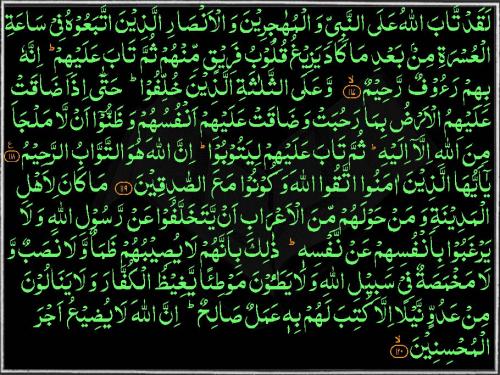 لَقَدْ تَّابَ اللّٰهُ عَلَى النَّبِىِّ وَ الْمُهٰجِرِيْنَ وَ الْاَنْصَارِ الَّذِيْنَ اتَّبَعُوْهُ فِىْ سَاعَةِ
الْعُسْرَةِ مِنْۢ بَعْدِ مَا كَادَ يَزِيْغُ قُلُوْبُ فَرِيْقٍ مِّنْهُمْ ثُمَّ تَابَ عَلَيْهِمْ ؕ اِنَّهٗ
بِهِمْ رَءُوْفٌ رَّحِيْمٌ ۙ‏﴿۱۱۷﴾ وَّعَلَى الثَّلٰثَةِ الَّذِيْنَ خُلِّفُوْا ؕ حَتّٰۤى اِذَا ضَاقَتْ
عَلَيْهِمُ الْاَرْضُ بِمَا رَحُبَتْ وَ ضَاقَتْ عَلَيْهِمْ اَنْفُسُهُمْ وَ ظَنُّوْۤا اَنْ لَّا مَلْجَاَ
مِنَ اللّٰهِ اِلَّاۤ اِلَيْهِ ؕ ثُمَّ تَابَ عَلَيْهِمْ لِيَتُوْبُوْا ؕ اِنَّ اللّٰهَ هُوَ التَّوَّابُ الرَّحِيْمُ ﴿۱۱۸﴾
يٰۤاَيُّهَا الَّذِيْنَ اٰمَنُوا اتَّقُوا اللّٰهَ وَ كُوْنُوْا مَعَ الصّٰدِقِيْنَ ﴿۱۱۹﴾ مَا كَانَ لِاَهْلِ
الْمَدِيْنَةِ وَ مَنْ حَوْلَهُمْ مِّنَ الْاَعْرَابِ اَنْ يَّتَخَلَّفُوْا عَنْ رَّسُوْلِ اللّٰهِ وَ لَا
يَرْغَبُوْا بِاَنْفُسِهِمْ عَنْ نَّفْسِهٖ ؕ ذٰلِكَ بِاَنَّهُمْ لَا يُصِيْبُهُمْ ظَمَاٌ وَّ لَا نَصَبٌ وَّ
لَا مَخْمَصَةٌ فِىْ سَبِيْلِ اللّٰهِ وَ لَا يَطَـُٔوْنَ مَوْطِئًا يَّغِيْظُ الْكُفَّارَ وَ لَا يَنَالُوْنَ
مِنْ عَدُوٍّ نَّيْلًا اِلَّا كُتِبَ لَهُمْ بِهٖ عَمَلٌ صَالِحٌ ؕ اِنَّ اللّٰهَ لَا يُضِيْعُ اَجْرَ
الْمُحْسِنِيْنَ ۙ‏﴿۱۲۰﴾